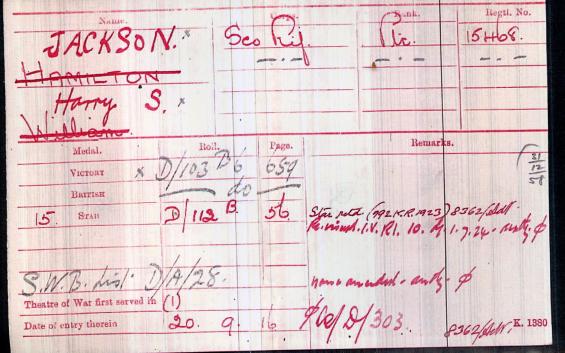 Name. Corps. Rank. Regtl. No.
JACKSON. x Sco Rif. Pte. 15468.
HAMILTON
Harry S. x
William
Medal. Roll. Page. Remarks.
VICTORY x D/103 B6 659
BRITISH do
15 STAR D/112 B. 56 Star retd (992 K.R. 1923) 8362/Adt.
Re-issued. I.V. R1. 10. d/ 1.7.24 - auty. ϕ
31
12
58
S.W.B. List D/A/28. name amended - auty. ϕ
Theatre of War first served in (1)
Date of entry therein 20. 9. 16 D/303
8362/Adt. K. 1380